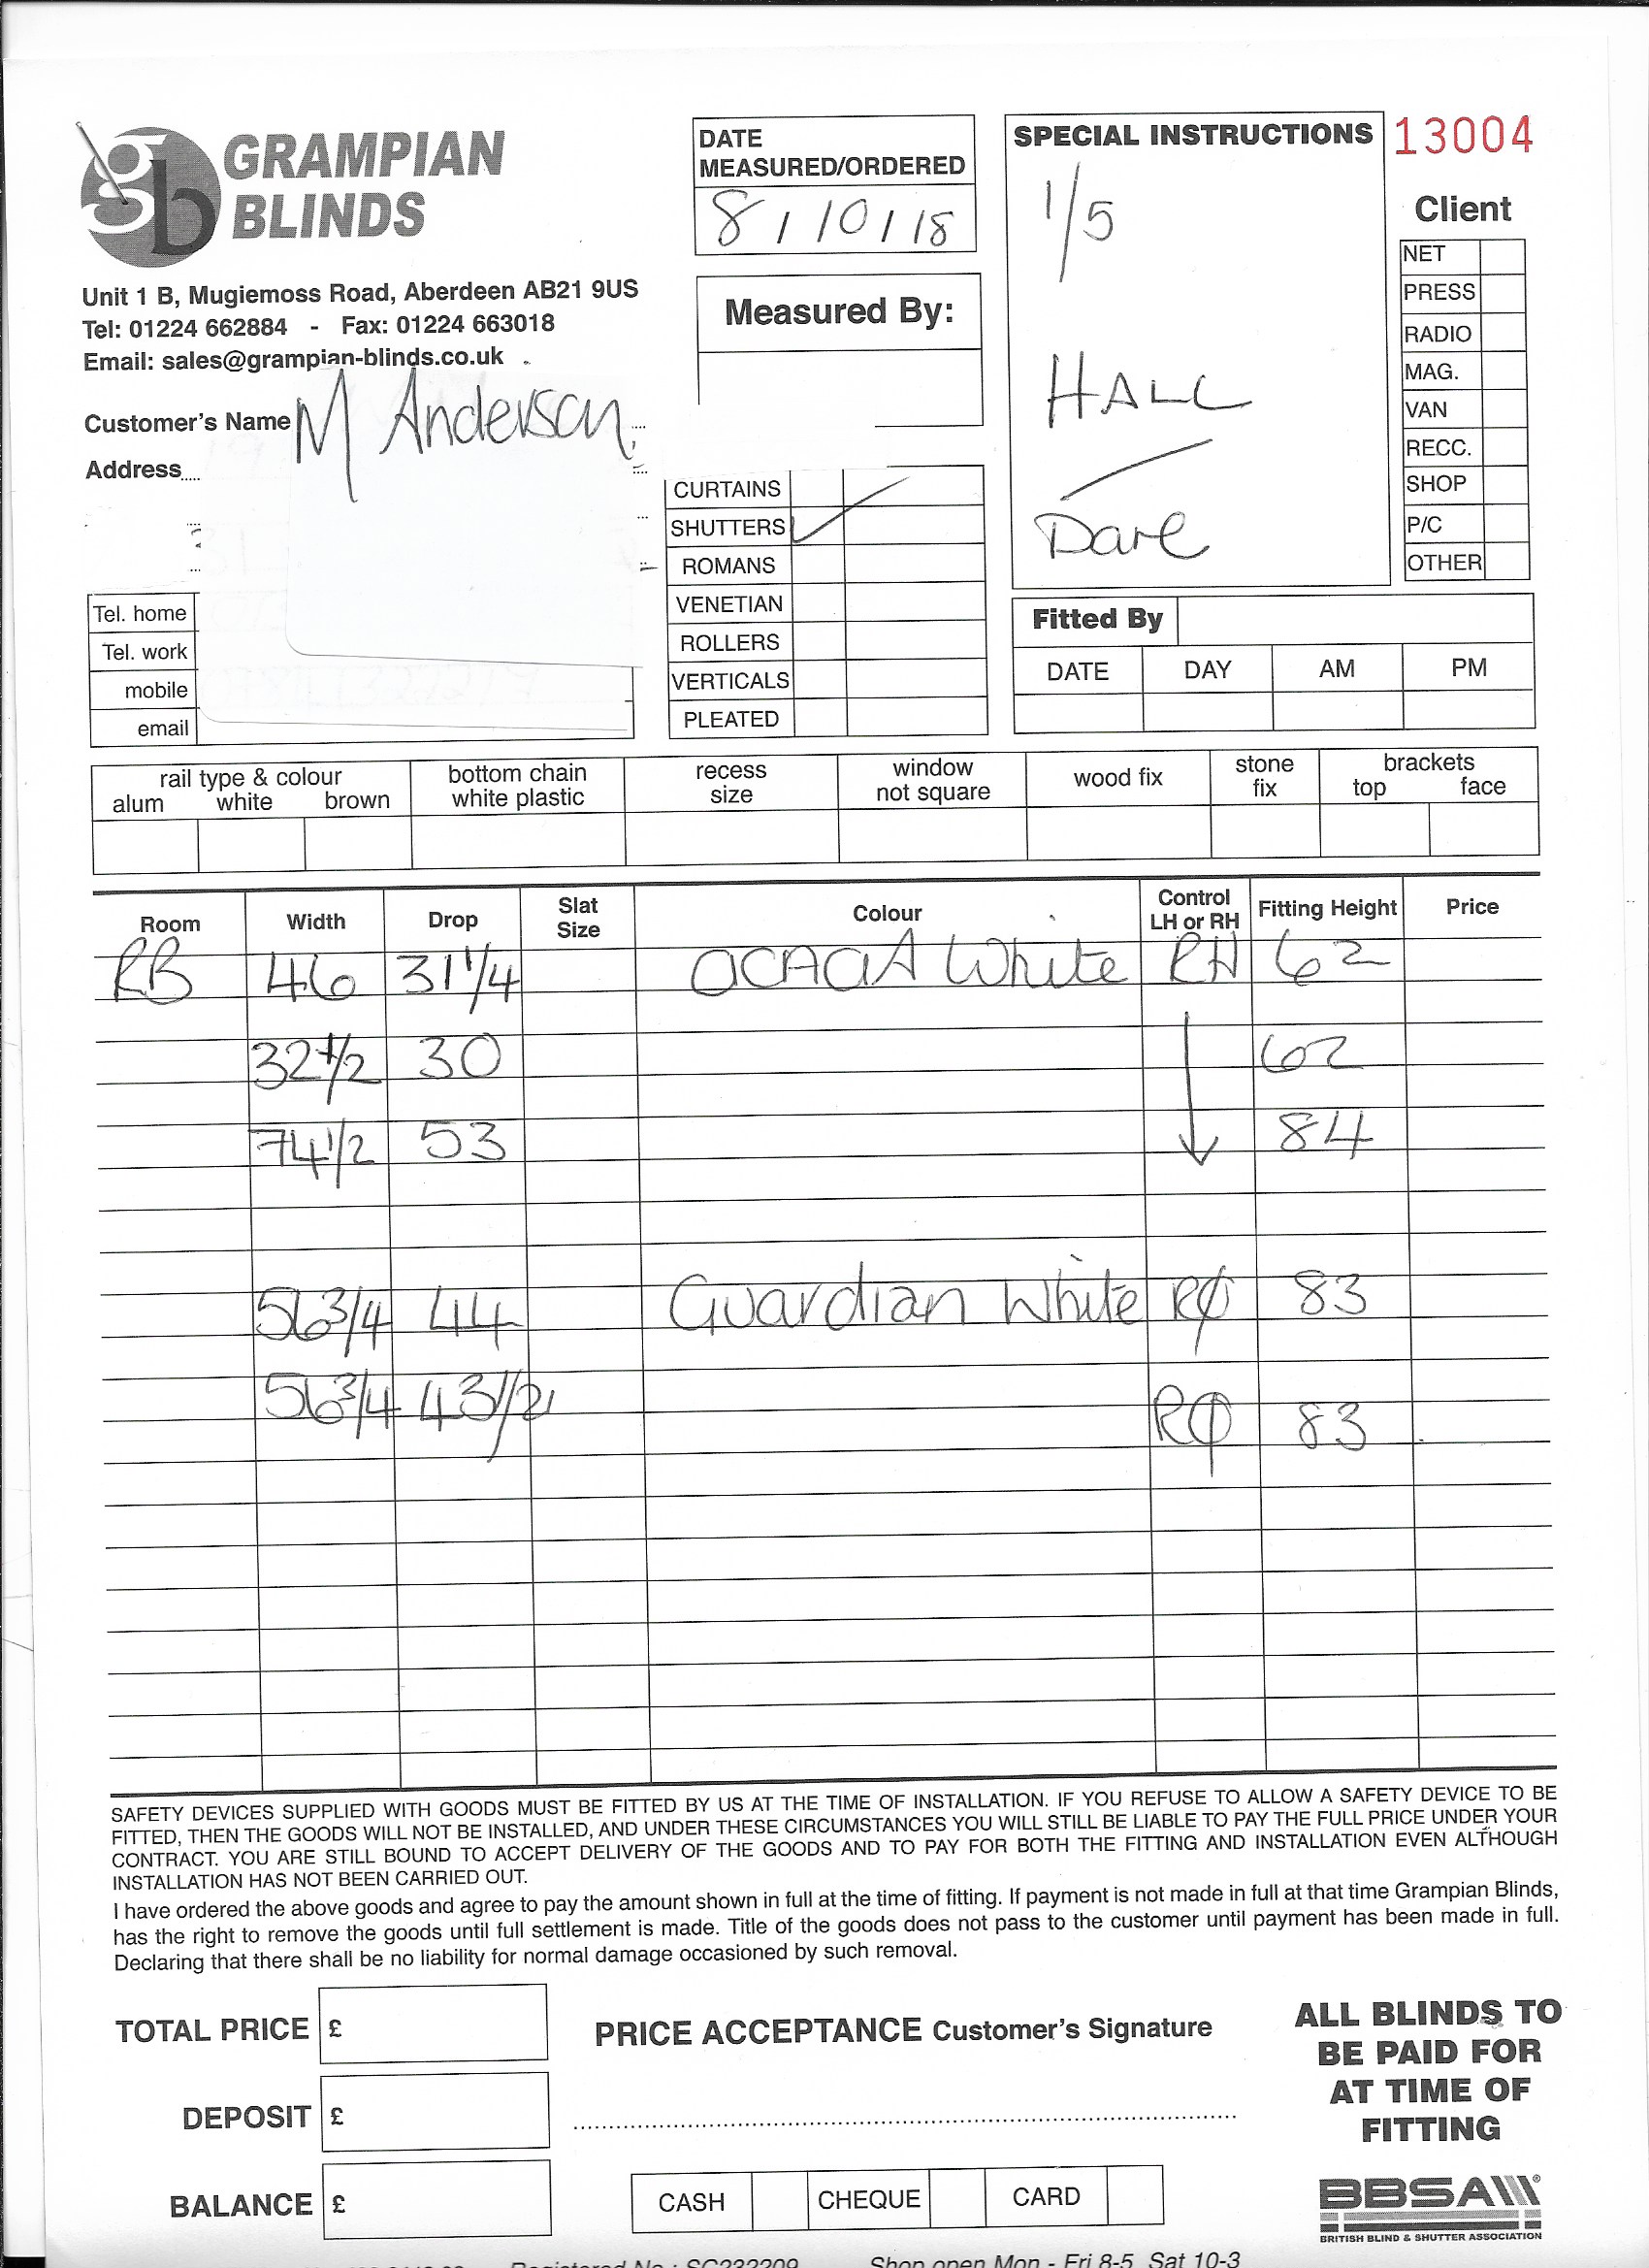 gb GRAMPIAN
BLINDS
Unit 1 B, Mugiemoss Road, Aberdeen AB21 9US
Tel: 01224 662884 - Fax: 01224 663018
Email: sales@grampian-blinds.co.uk
Customer's Name M Anderson
Address
Tel. home
Tel. work
mobile
email
DATE
MEASURED/ORDERED
8/10/18
Measured By:
CURTAINS
SHUTTERS
ROMANS
VENETIAN
ROLLERS
VERTICALS
PLEATED
SPECIAL INSTRUCTIONS
1/5
HALL
Dare
13004
Client
NET
PRESS
RADIO
MAG.
VAN
RECC.
SHOP
P/C
OTHER
Fitted By
DATE DAY AM PM
rail type & colour
alum white brown
bottom chain
white plastic
recess
size
window
not square
wood fix
stone
fix
brackets
top face
Room Width Drop Slat Size Colour Control LH or RH Fitting Height Price
RB 46 31 1/4 OCACIA White RH 62
32 1/2 30 62
74 1/2 53 84
56 3/4 44 Guardian White 83
56 3/4 43 1/2 83
SAFETY DEVICES SUPPLIED WITH GOODS MUST BE FITTED BY US AT THE TIME OF INSTALLATION. IF YOU REFUSE TO ALLOW A SAFETY DEVICE TO BE
FITTED, THEN THE GOODS WILL NOT BE INSTALLED, AND UNDER THESE CIRCUMSTANCES YOU WILL STILL BE LIABLE TO PAY THE FULL PRICE UNDER YOUR
CONTRACT. YOU ARE STILL BOUND TO ACCEPT DELIVERY OF THE GOODS AND TO PAY FOR BOTH THE FITTING AND INSTALLATION EVEN ALTHOUGH
INSTALLATION HAS NOT BEEN CARRIED OUT.
I have ordered the above goods and agree to pay the amount shown in full at the time of fitting. If payment is not made in full at that time Grampian Blinds,
has the right to remove the goods until full settlement is made. Title of the goods does not pass to the customer until payment has been made in full.
Declaring that there shall be no liability for normal damage occasioned by such removal.
TOTAL PRICE £
DEPOSIT £
BALANCE £
PRICE ACCEPTANCE Customer's Signature
CASH CHEQUE CARD
ALL BLINDS TO
BE PAID FOR
AT TIME OF
FITTING
BBSA
BRITISH BLIND & SHUTTER ASSOCIATION
Registered No.: SC232209 Shop open Mon - Fri 8-5 Sat 10-3